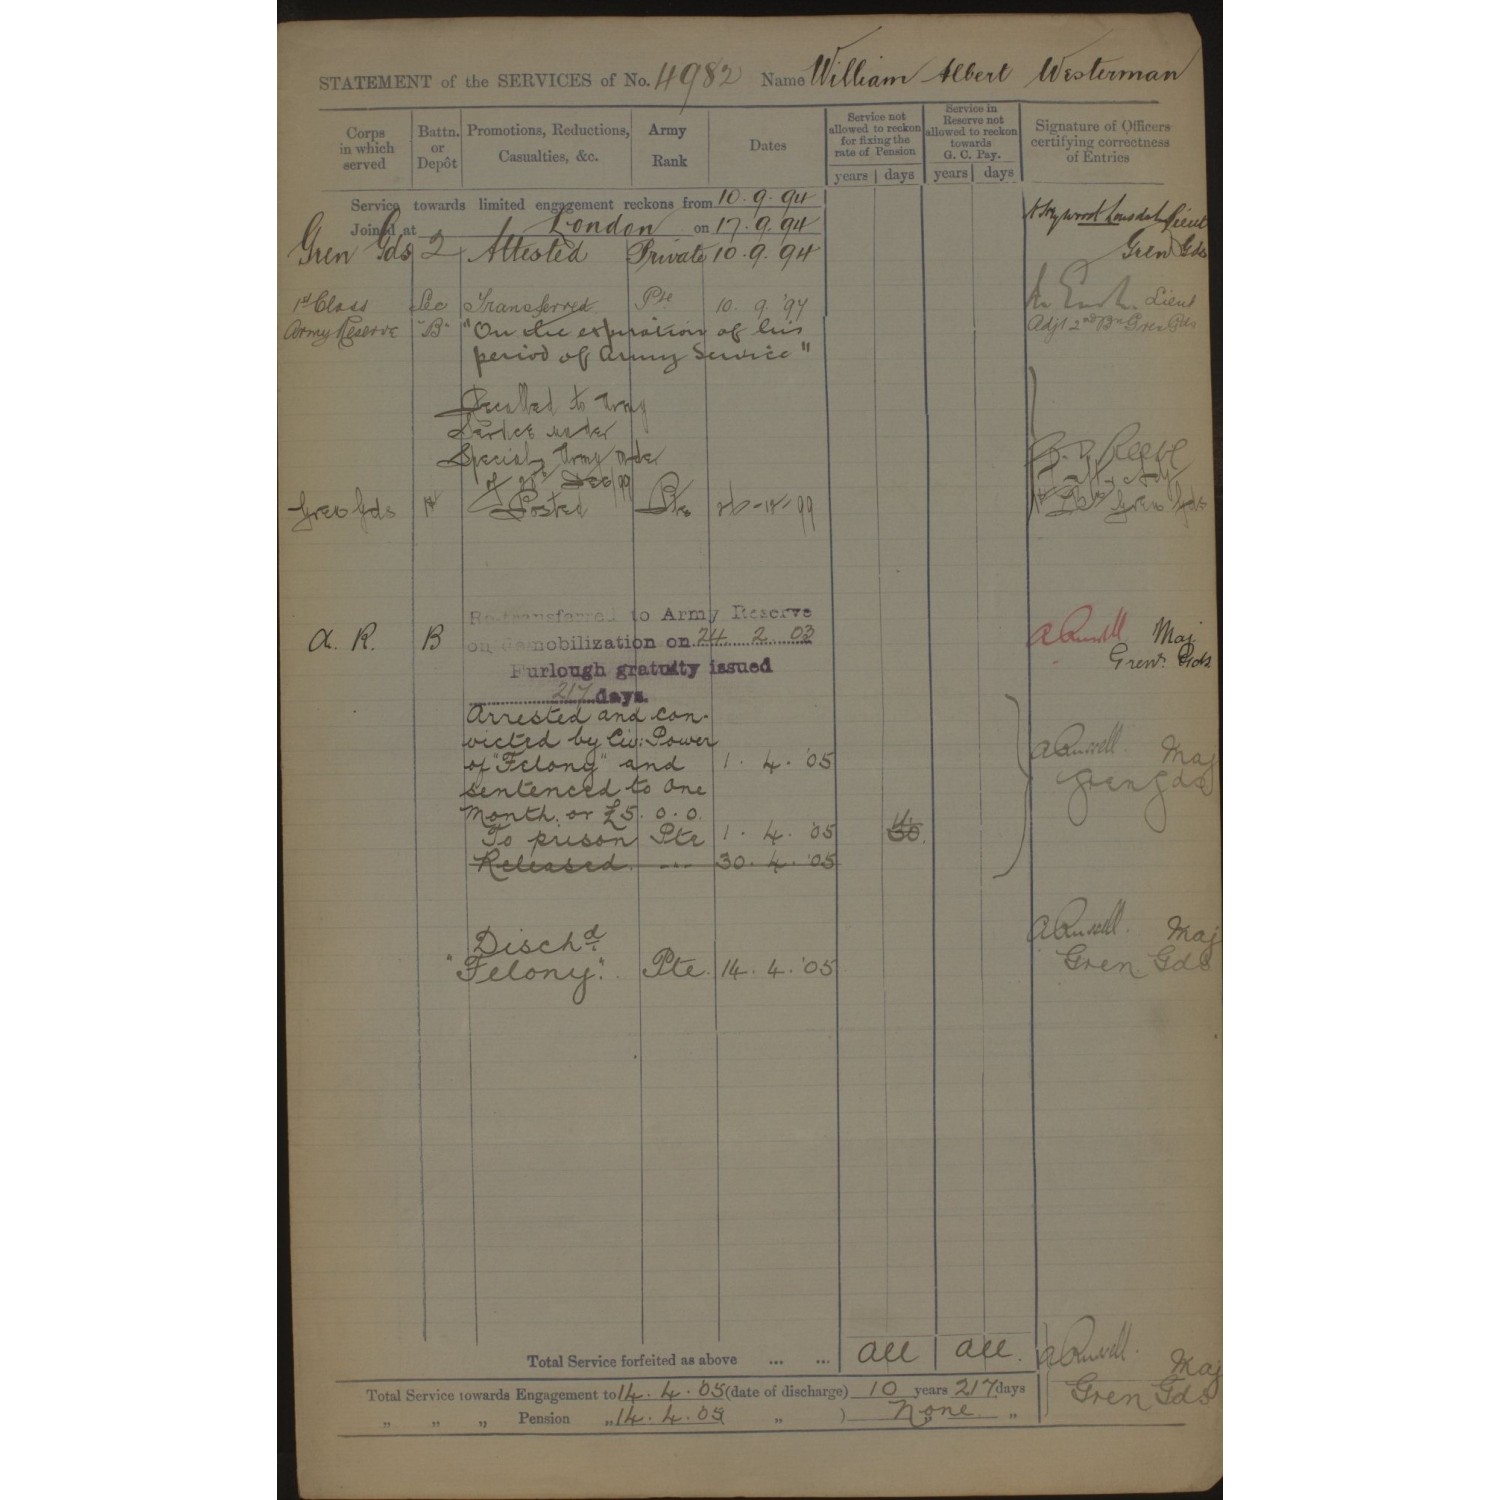 STATEMENT of the SERVICES of No. 4982 Name William Albert Westerman
Corps in which served
Battn. or Depôt
Promotions, Reductions, Casualties, &c.
Army Rank
Dates
Service not allowed to reckon for fixing the rate of Pension
years days
Service in Reserve not allowed to reckon towards G. C. Pay.
years days
Signature of Officers certifying correctness of Entries
Service towards limited engagement reckons from 10.9.94
Joined at London on 17.9.94
Lieut
Gren Gds 2 Attested Private 10.9.94 Gren Gds
1st Class Sec Transferred Pte 10.9.'97 Lieut
Army Reserve "B" "On the expiration of his Adjt 2nd Bn Gren Gds
period of Army Service"
Recalled to Army
Service under
Special Army Order
of Dec/99
Gren Gds 1st Posted Pte 99 Gren Gds
Re-transferred to Army Reserve
A. R. B on demobilization on 24 2 03 Maj
Furlough gratuity issued Gren. Gds.
217 days.
Arrested and con-
victed by Civ: Power
of "Felony" and 1.4.'05 Maj
sentenced to one Gren Gds
Month, or £5.0.0.
To prison Pte 1.4.'05 30.
Released. ... 30.4.'05
Dischd Maj
"Felony." Pte. 14.4.'05 Gren Gds
Total Service forfeited as above ... ... All All. Maj
Total Service towards Engagement to 14.4.05 (date of discharge) 10 years 217 days Gren Gds
„ „ „ Pension „ 14.4.05 „ ) None „